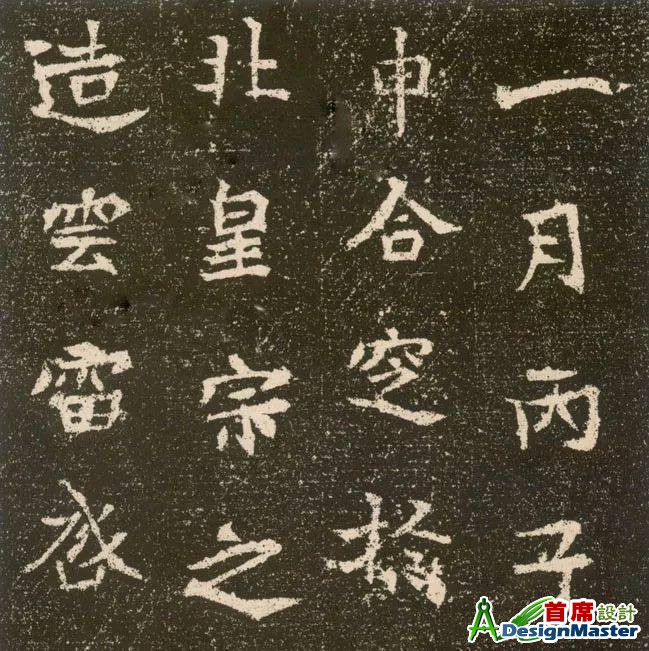 一月丙子
申合窆於
北皇宗之
造雲雷
首席設計
DesignMaster